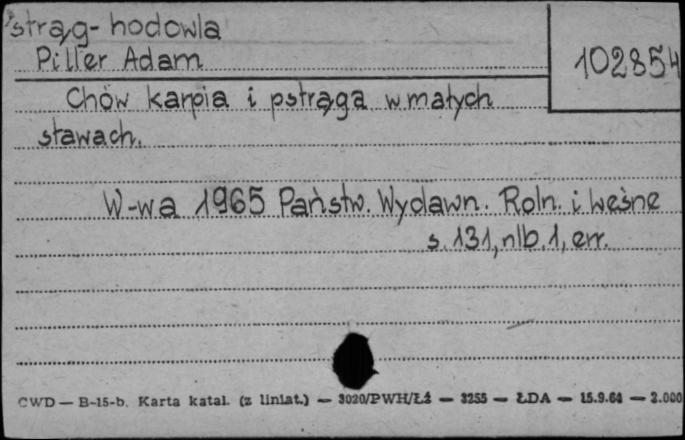 Pstrąg- hodowla
Piller Adam
102854
Chów karpia i pstrąga w małych
stawach.
W-wa 1965 Państw. Wydawn. Roln. i Leśne
s. 131, nlb. 1, err.
CWD — B-15-b. Karta katal. (z liniat.) — 3020/PWH/Łź — 3255 — ŁDA — 15.9.64 — 2.000